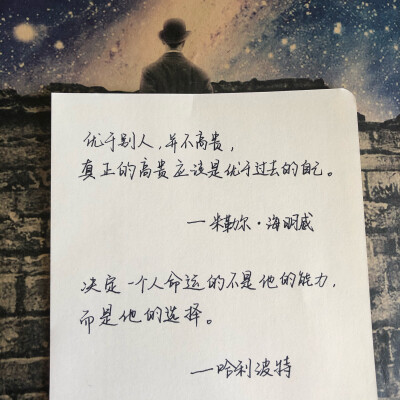 优于别人，并不高贵，
真正的高贵应该是优于过去的自己。
—米勒尔·海明威
决定一个人命运的不是他的能力，
而是他的选择。
—哈利波特